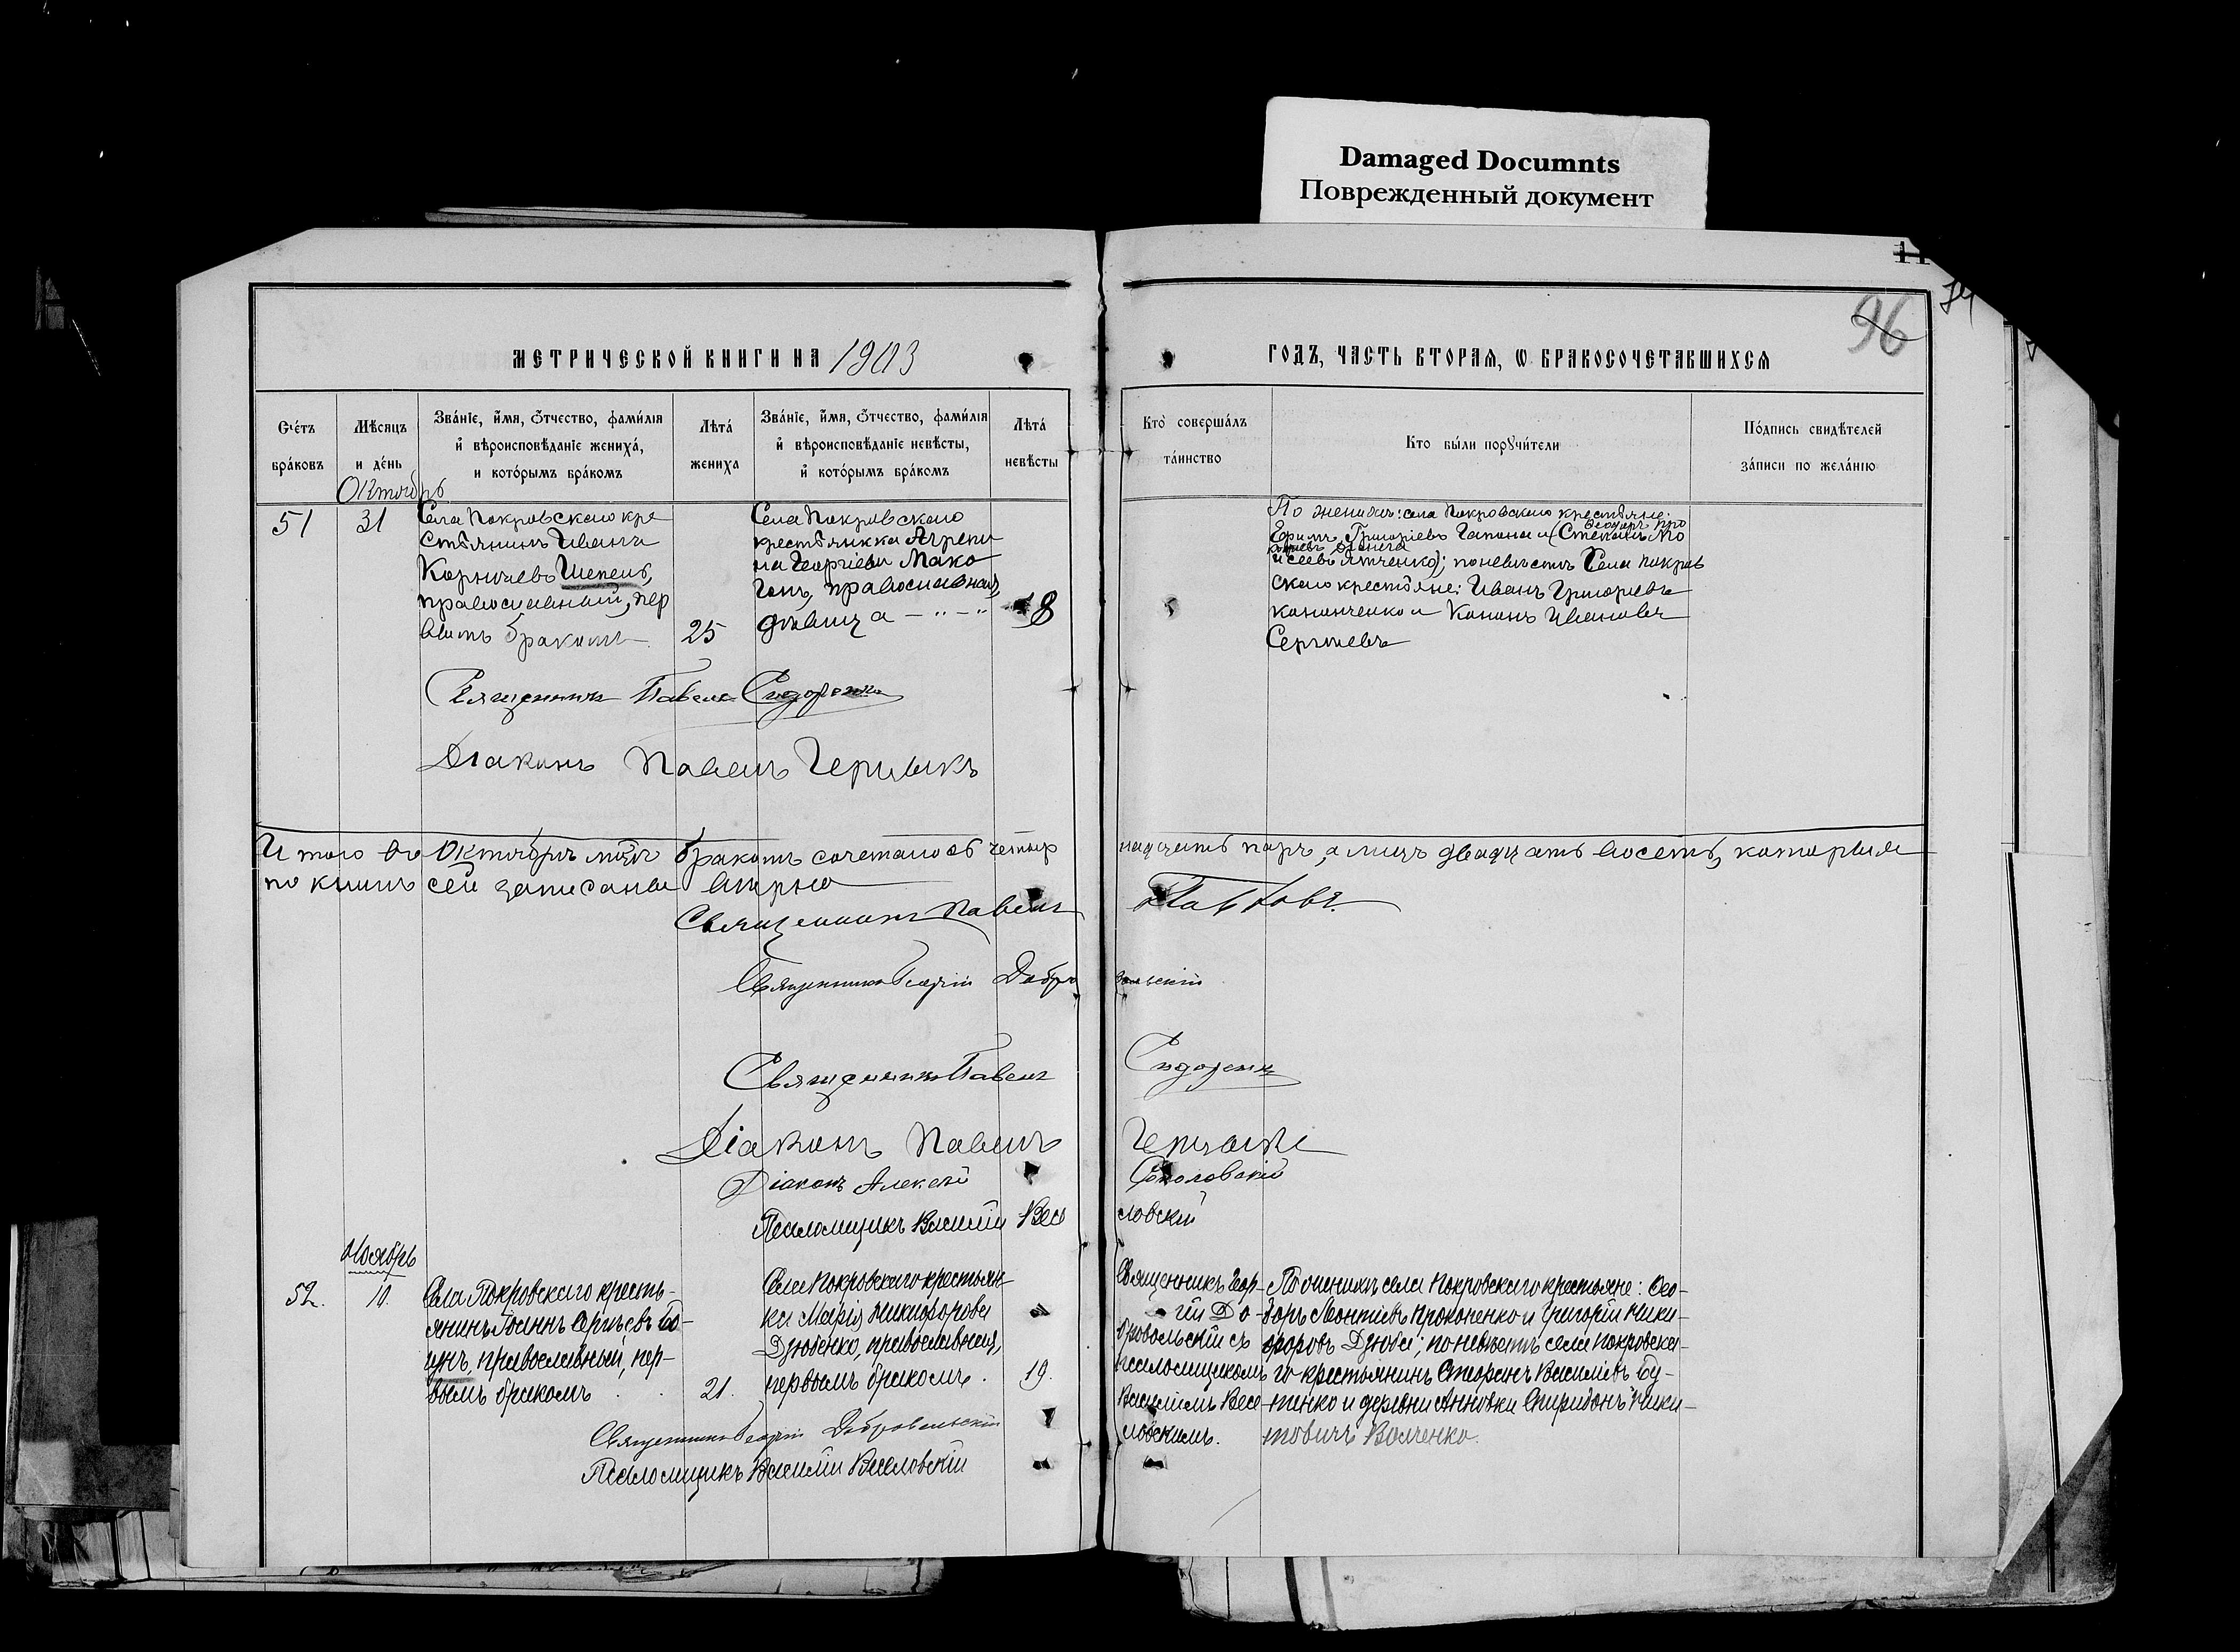 Damaged Documnts
Поврежденный документ
96
МЕТРИЧЕСКОЙ КНИГИ НА 1903
ГОДЪ, ЧАСТЬ ВТОРАЯ, Ѡ БРАКОСОЧЕТАВШИХСЯ
Счетъ браковъ
Мѣсяцъ и день
Званіе, имя, отчество, фамилія и вѣроисповѣданіе жениха, и которымъ бракомъ
Лѣта жениха
Званіе, имя, отчество, фамилія и вѣроисповѣданіе невѣсты, и которымъ бракомъ
Лѣта невѣсты
Кто совершалъ таинство
Кто были поручители
Подпись свидѣтелей записи по желанію
Октябрь
51
31
Села Покровскаго кре
стьянинъ Иванъ
Корнiевъ Шепель,
православный, пер
вымъ бракомъ
25
Села Покровскаго
крестьянка Агрепи
на Георгiева Мако
гонъ, православная,
дѣвица
18
По женихѣ: села Покровскаго крестьяне:
Ефимъ Григорьевъ Гапона и (Стефанъ Мо
исеевъ Ятченко); по невѣстѣ Села Покров
скаго крестьяне: Иванъ Григорьевъ
Кононченко и Кононъ Ивановъ
Сергiевъ
Священникъ Павелъ Сидоренко
Дiаконъ Павелъ
Итого въ Октябрѣ мѣсяцѣ бракомъ сочеталось четыр
надцать паръ, а лицъ двадцать восемь, которыя
по книгѣ сей записаны вѣрно
Священникъ Павелъ Павловъ.
Священникъ Георгій Добровольскій
Священникъ Павелъ Сидоренко
Дiаконъ Павелъ
Дiаконъ Алексѣй Соколовскій
Псаломщикъ Василій Веселовскій
Ноябрь
52.
10.
Села Покровскаго кресть-
янинъ Іоаннъ Сергѣевъ Бо-
цунъ, православный, пер-
вымъ бракомъ
21.
Села Покровскаго крестьян-
ка Марія Никифорова
Дзюбенко, православная,
первымъ бракомъ.
19.
Священникъ Геор-
гій До-
бровольскій съ
псаломщикомъ
Василіемъ Весе-
ловскимъ.
По женихѣ села Покровскаго крестьяне: Ѳео-
доръ Леонтіевъ Прокопенко и Григорій Ники-
форовъ Дзюба; по невѣстѣ села Покровска-
го крестьянинъ Стефанъ Василіевъ Бу-
тенко и деревни Анновки Спиридонъ Ники-
товичъ Волченко.
Священникъ Георгій Добровольскій
Псаломщикъ Василій Веселовскій